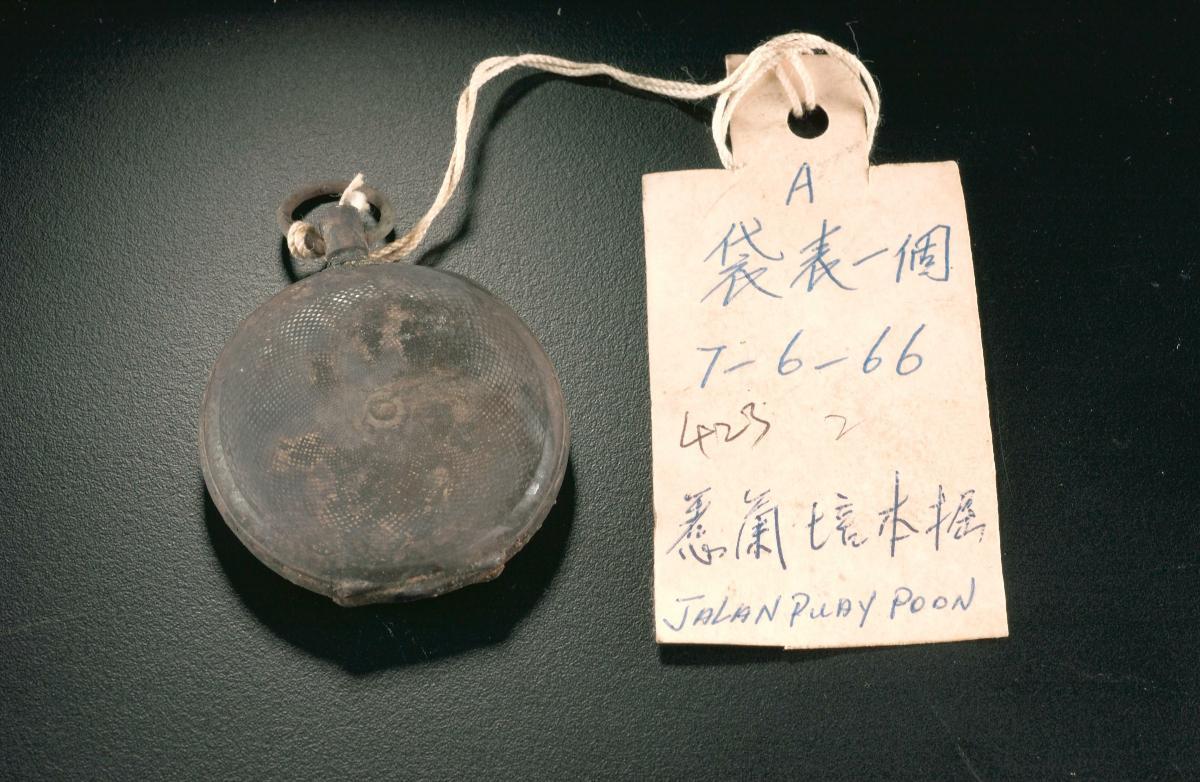 A
袋表一個
7-6-66
423 2
惹蘭培本掘
JALAN PUAY POON